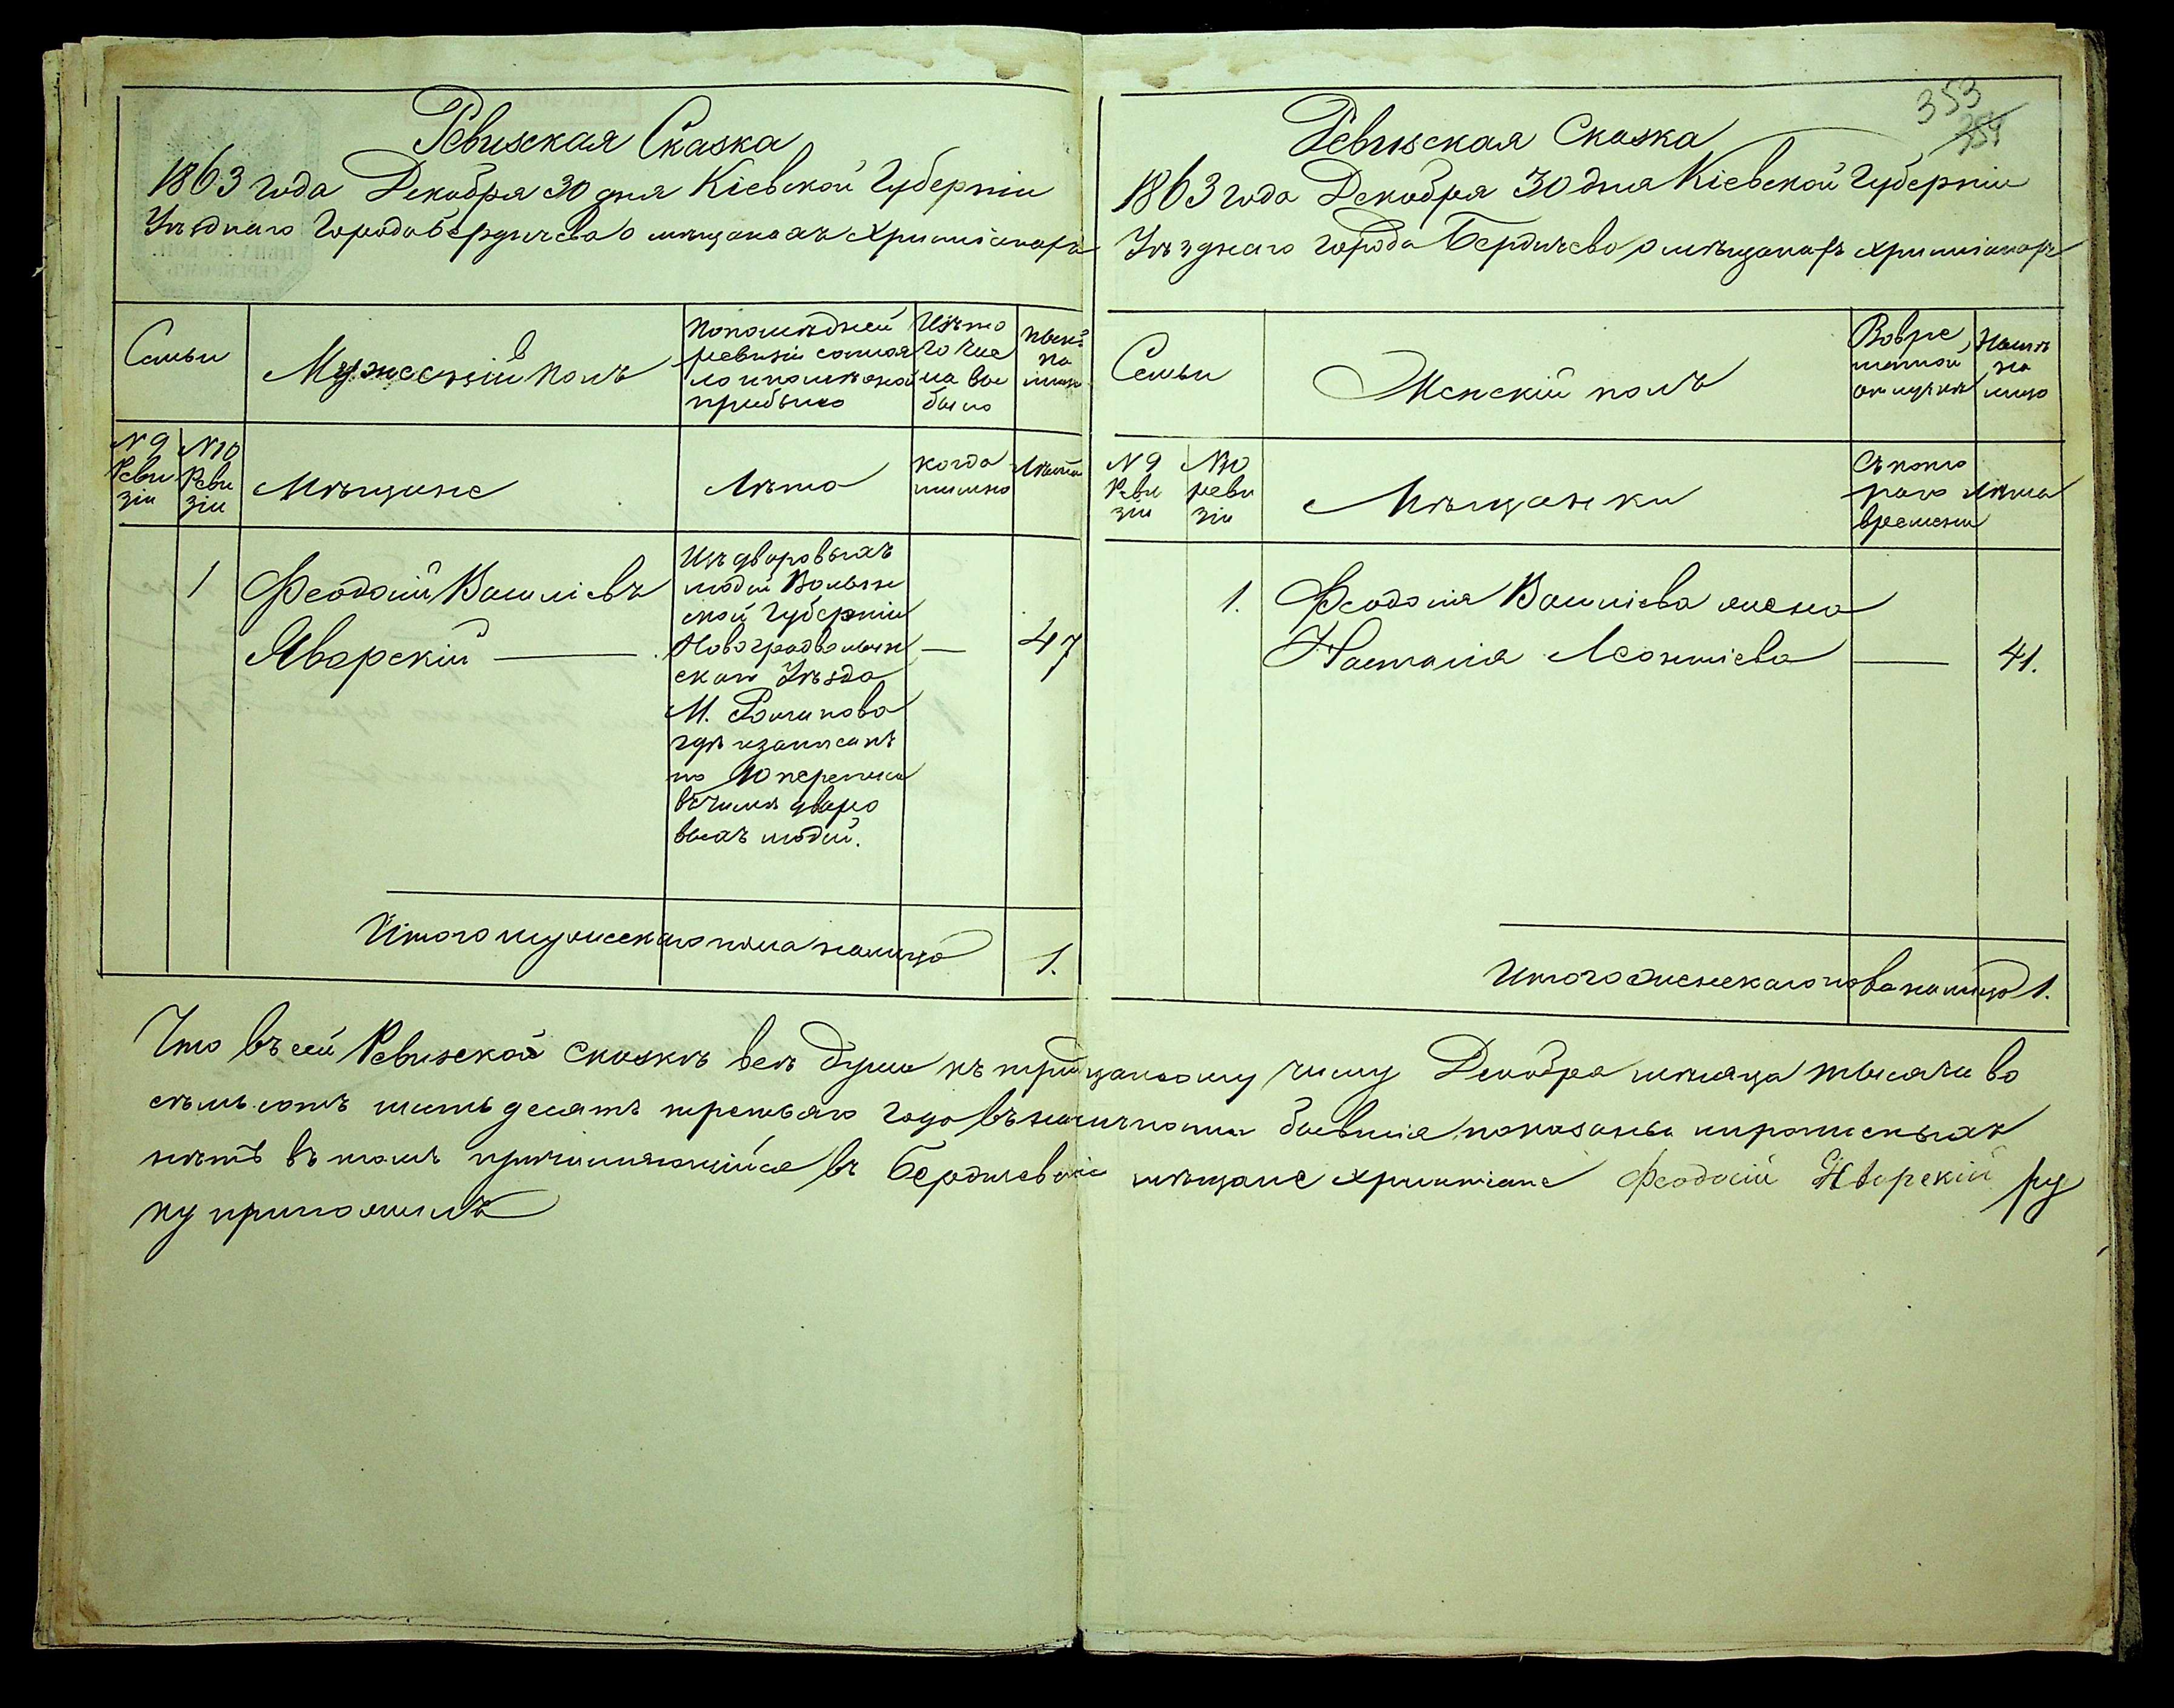 Ревизская Сказка
1863 года Декабря 30 дня Кіевской Губерніи
Уѣзднаго Города Бердичева о мѣщанахъ христіанахъ
Семьи
Мужескій полъ
По последней
ревизіи состоя
ло и после оной
прибыло
Изъ то
го чис
ла вы
было
Ныне
на
лицо
N 9
Реви
зіи
N 10
Реви
зіи
Мѣщане
Лѣта
когда
именно
Лѣта
1
Феодосій Василіевъ
Яворскій
Изъ дворовыхъ
людей Волын
ской Губерніи
Новоградволын
скаго Уѣзда
М.
где и записанъ
по 10 переписи
въ числѣ дворо
выхъ людей.
47
Итого мужескаго пола налицо
1.
353
354
Ревизская Сказка
1863 года Декабря 30 дня Кіевской Губерніи
Уѣзднаго города Бердичева о мѣщанахъ христіанахъ
Семьи
Женскій полъ
Во вре
менной
отлучкѣ
на
лицо
N 9
Реви
зіи
N 10
реви
зіи
Мѣщанки
Съ кото
раго
времени
Лѣта
1.
Феодосія Василіева жена
Настасія Леонтіева
41.
Итого женскаго пола налицо 1.
Что въ сей Ревизской сказкѣ все души къ тридцатому числу Декабря мѣсяца тысяча во
семь сотъ шесть десятъ третьяго года въ наличности бывшія показаны и прописныхъ
нѣтъ въ томъ причисляющійся въ Бердичевскіе мѣщане христіане Феодосій Яворскій ру
ку приложилъ